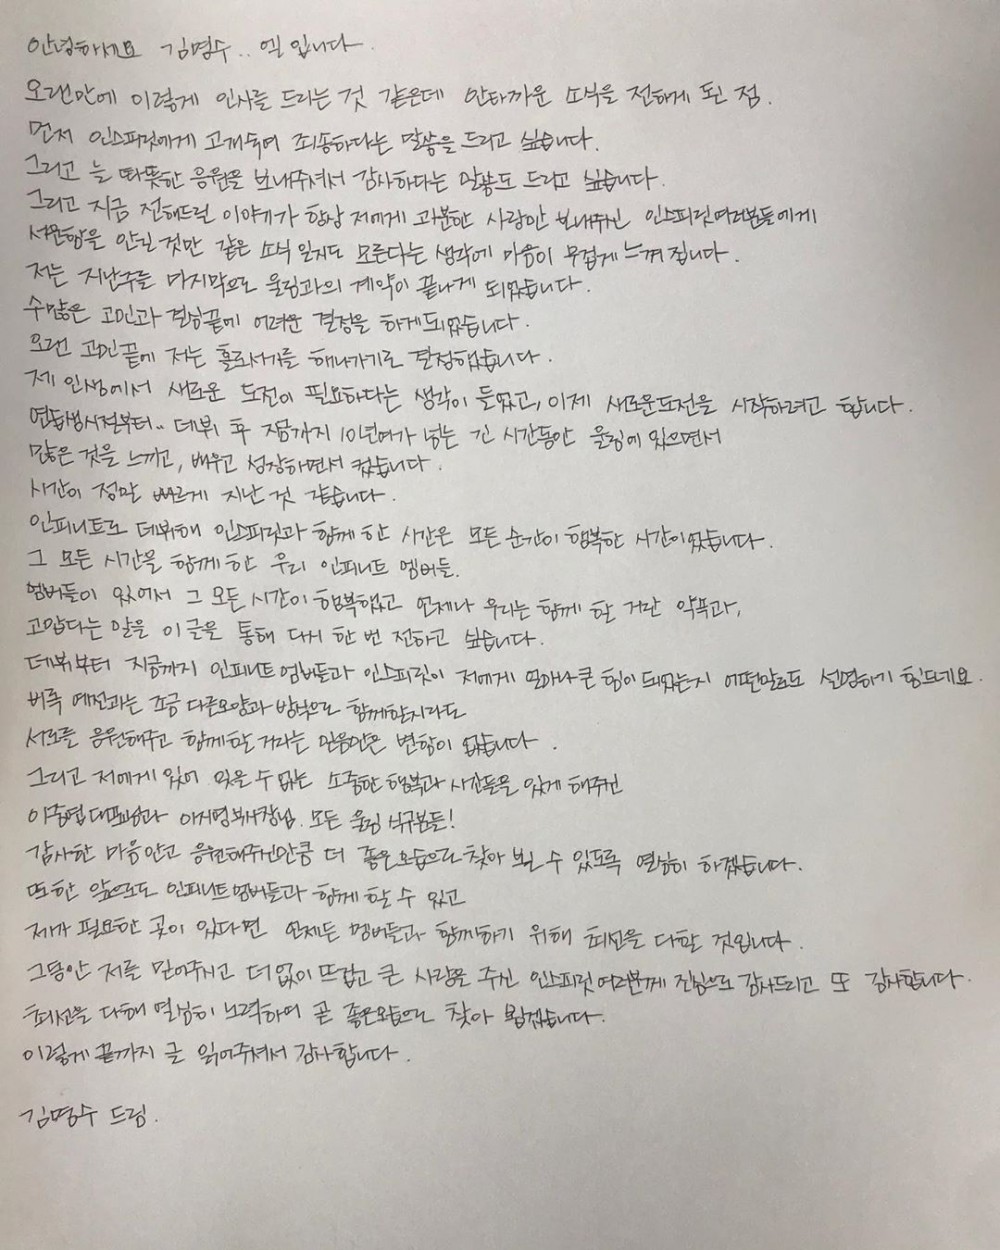 안녕하세요 김명수.. 엘 입니다.
오랜만에 이렇게 인사를 드리는 것 같은데 안타까운 소식을 전하게 된 점.
먼저 인스피릿에게 고개숙여 죄송하다는 말씀을 드리고 싶습니다.
그리고 늘 따뜻한 응원을 보내주셔서 감사하다는 말씀도 드리고 싶습니다.
그리고 지금 전해드릴 이야기가 항상 저에게 과분한 사랑만 보내주신 인스피릿여러분들에게
서운함을 안길 것만 같은 소식 일지도 모른다는 생각에 마음이 무겁게 느껴 집니다.
저는 지난주를 마지막으로 울림과의 계약이 끝나게 되었습니다.
수많은 고민과 결심끝에 어려운 결정을 하게되었습니다.
오랜 고민끝에 저는 홀로서기를 해나가기로 결정했습니다.
제 인생에서 새로운 도전이 필요하다는 생각이 들었고, 이제 새로운도전을 시작하려고 합니다.
연습생시절부터.. 데뷔 후 지금까지 10년여가 넘는 긴 시간동안 울림에 있으면서
많은 것을 느끼고, 배우고 성장하면서 컸습니다.
시간이 정말 빠르게 지난 것 같습니다.
인피니트로 데뷔해 인스피릿과 함께 한 시간은 모든 순간이 행복한 시간이었습니다.
그 모든 시간을 함께 한 우리 인피니트 멤버들.
멤버들이 있어서 그 모든 시간이 행복했고 언제나 우리는 함께 할 거란 약속과,
고맙다는 말을 이 글을 통해 다시 한 번 전하고 싶습니다.
데뷔부터 지금까지 인피니트 멤버들과 인스피릿이 저에게 얼마나 큰 힘이 되었는지 어떤말로도 설명하기 힘드네요.
비록 예전과는 조금 다른모양과 방식으로 함께할지라도
서로를 응원해주고 함께할 거라는 믿음만은 변함이 없습니다.
그리고 저에게 있어 잊을 수 없는 소중한 행복과 시간들을 있게 해주신
이중엽대표님과 이지영부사장님. 모든 울림 식구분들!
감사한 마음안고 응원해주신만큼 더 좋은모습으로 찾아 뵐 수 있도록 열심히 하겠습니다.
또한 앞으로도 인피니트멤버들과 함께 할 수 있고
제가 필요한 곳이 있다면 언제든 멤버들과 함께하기 위해 최선을 다할 것입니다.
그동안 저를 믿어주시고 더없이 뜨겁고 큰 사랑을 주신 인스피릿 여러분께 진심으로 감사드리고 또 감사합니다.
최선을 다해 열심히 노력하여 곧 좋은모습으로 찾아 뵙겠습니다.
이렇게 끝까지 글 읽어주셔서 감사합니다.
김명수 드림.